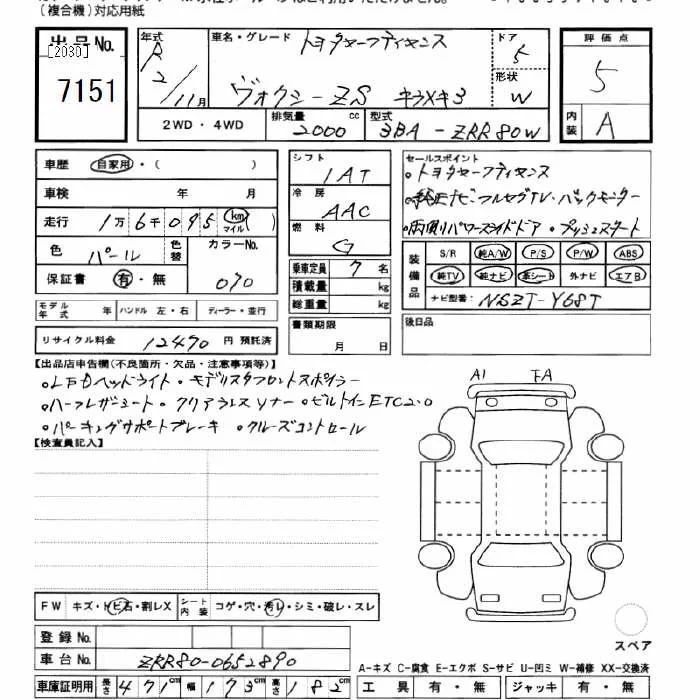 (複合機)対応用紙
出品No.
[2030]
7151
年式 R 2/11月
車名・グレード トヨタセーフティセンス
ヴォクシーZS キラメキ3
ドア 5
形状 W
評価点 5
内装 A
2WD・4WD
排気量 2000 cc
型式 3BA-ZRR80W
車歴 自家用・( )
車検 年 月
走行 1万6千095 km マイル ( )
色 パール 色替
カラーNo. 070
保証書 有・無
モデル年式 年 ハンドル 左・右 ディーラー・並行
リサイクル料金 12490 円 預託済
シフト 1AT
冷房 AAC
燃料 G
乗車定員 7 名
積載量 kg
総重量 kg
書類期限
月 日
セールスポイント
・トヨタセーフティセンス
・純正ナビ・フルセグTV・バックモニター
・両側パワースライドドア・プッシュスタート
装備品
S/R 純A/W P/S P/W ABS
純TV 純ナビ 革シート 外ナビ エアB
ナビ型番: NSZT-Y68T
後日品
【出品店申告欄(不良箇所・欠品・注意事項等)】
・LEDヘッドライト・モデリスタフロントスポイラー
・ハーフレザーシート・クリアランスソナー・ビルトインETC2.0
・パーキングサポートブレーキ・クルーズコントロール
【検査員記入】
A1 FA
FW キズ・トビ石・割レX
シート内装 コゲ・穴・汚レ・シミ・破レ・スレ
登録No.
車台No. ZRR80-0652890
車庫証明用 長さ 471 cm 幅 173 cm 高さ 182 cm
スペア
A-キズ C-腐食 E-エクボ S-サビ U-凹ミ W-補修 XX-交換済
工具 有・無 ジャッキ 有・無